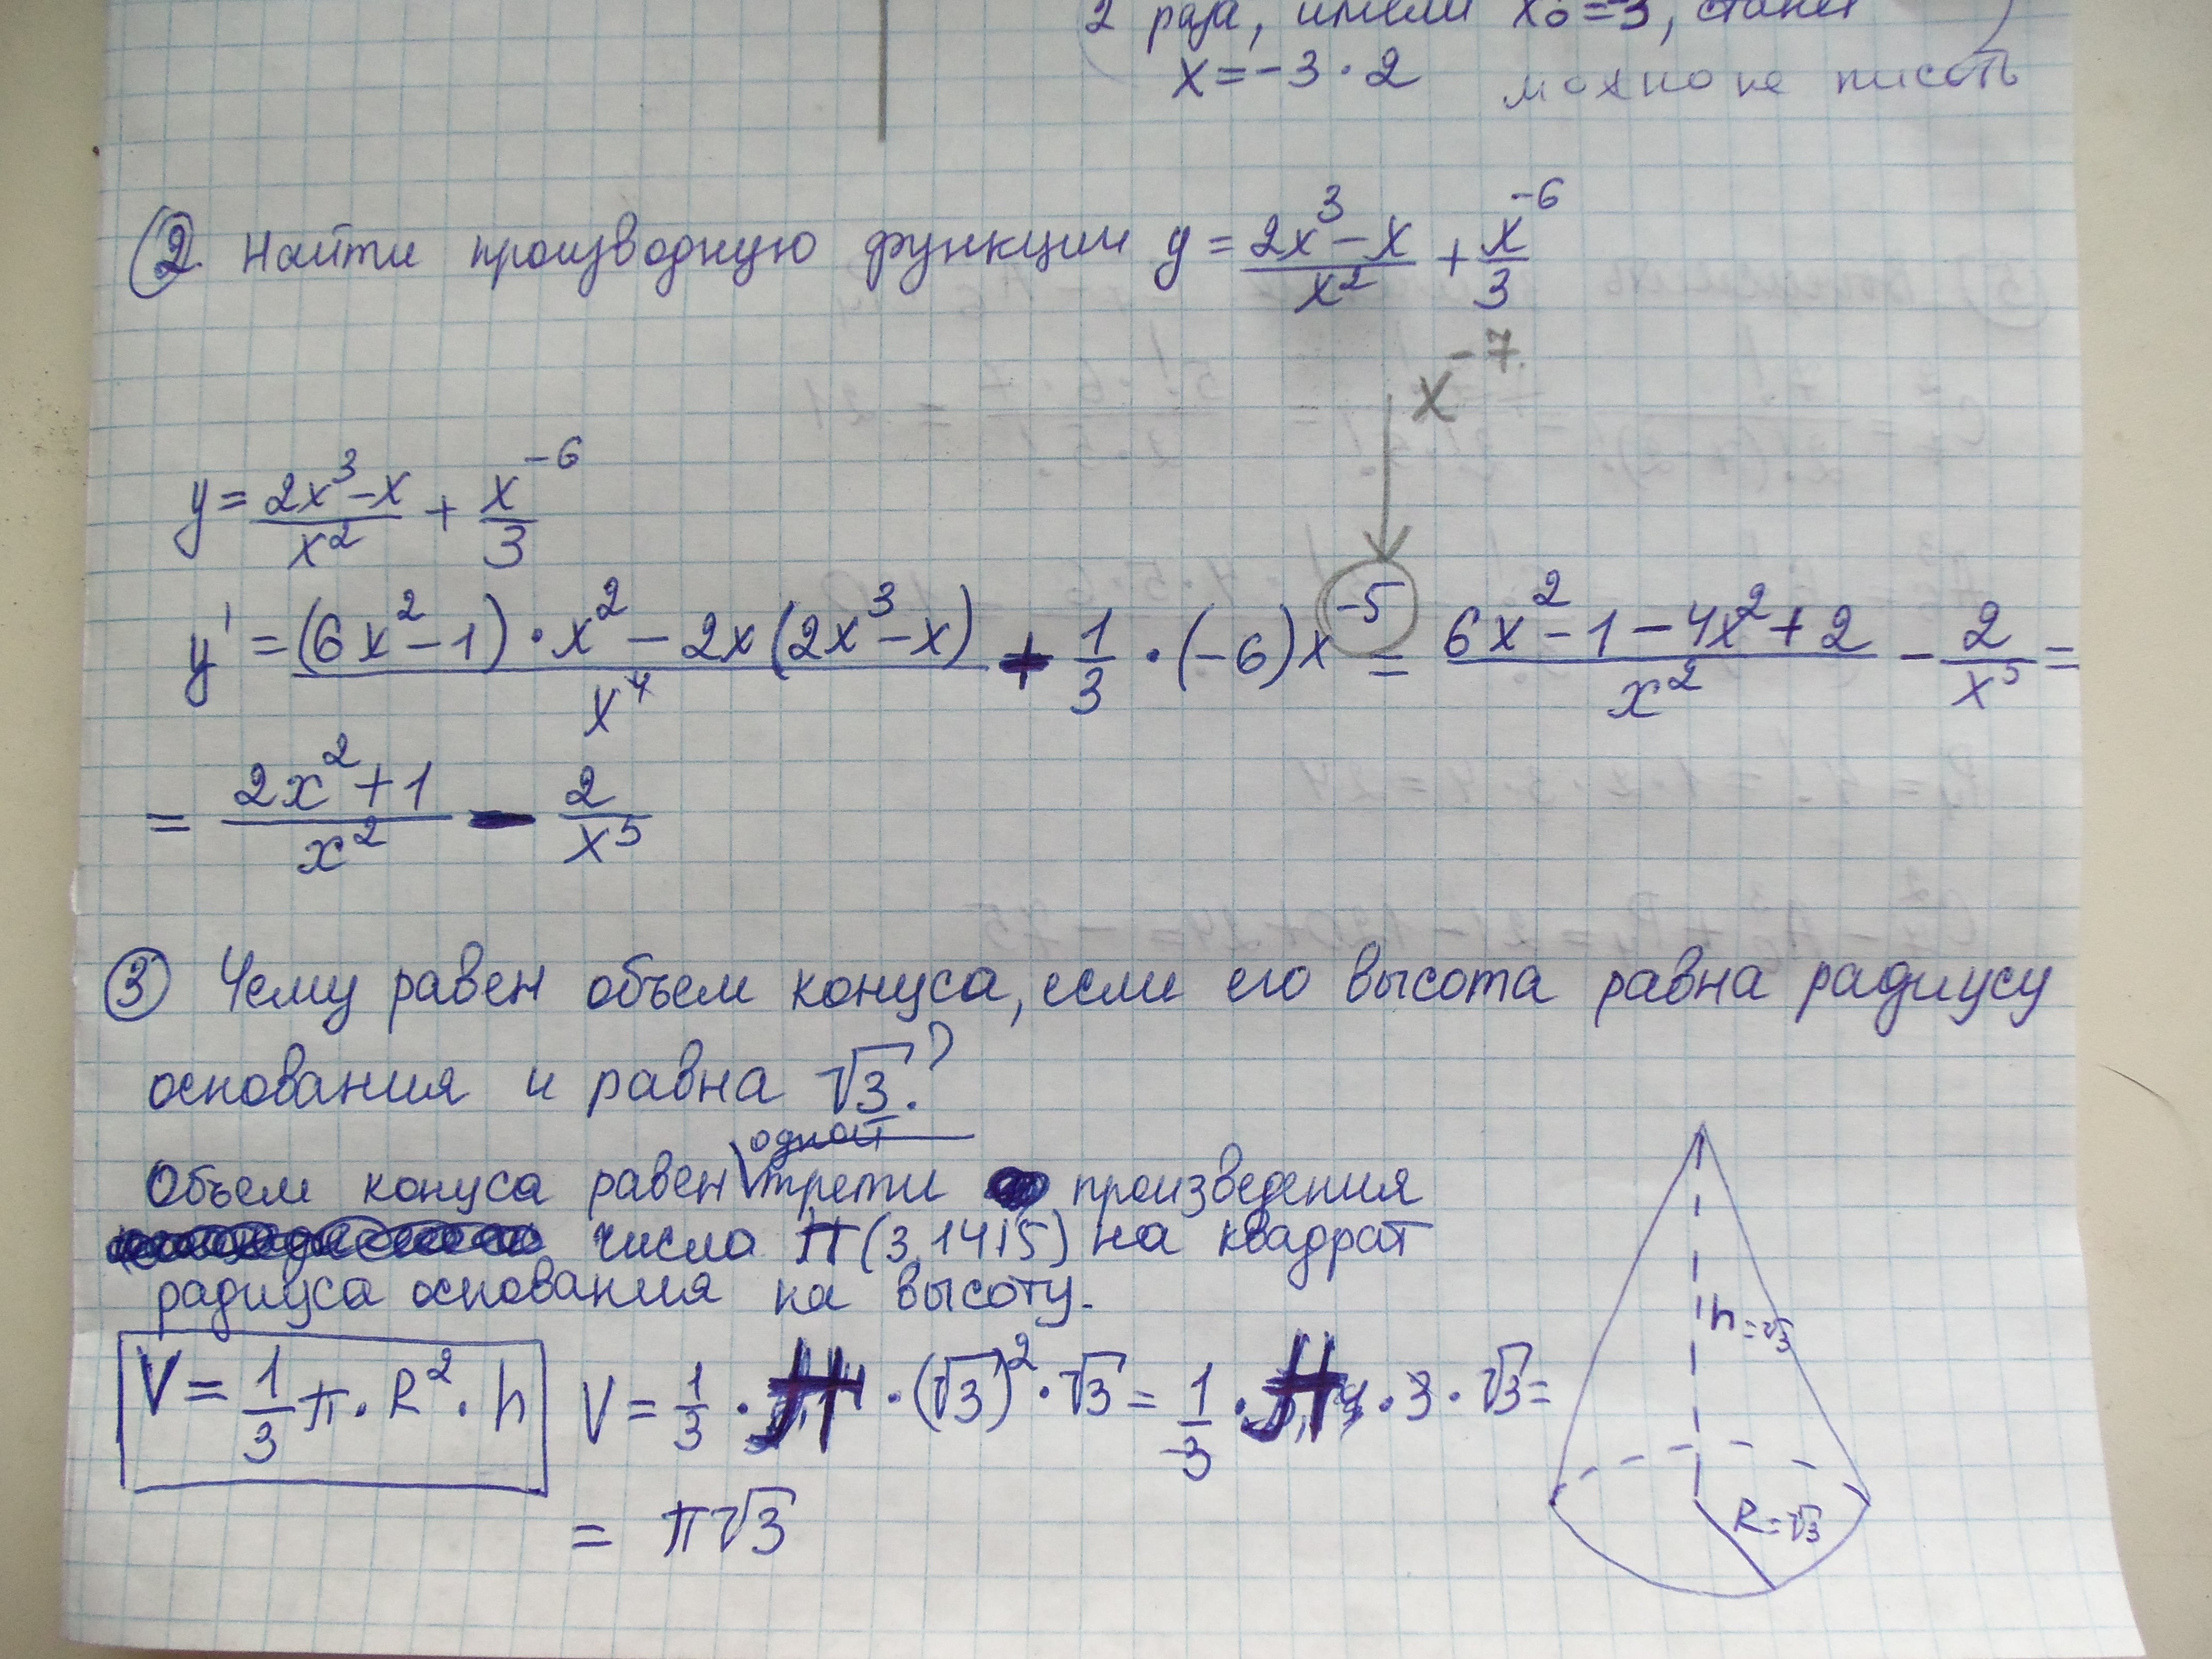 2 раза, имели x₀=-3, станет
x=-3·2 можно не писать
2. Найти производную функции y = (2x³-x)/x² + x⁻⁶/3
x⁻⁷
y = (2x³-x)/x² + x⁻⁶/3
y' = ((6x²-1)·x²-2x(2x³-x))/x⁴ + 1/3·(-6)x⁻⁵ = (6x²-1-4x²+2)/x² - 2/x⁵ =
= (2x²+1)/x² - 2/x⁵
3 Чему равен объем конуса, если его высота равна радиусу
основания и равна √3?
одной
Объем конуса равен трети произведения
числа π(3,1415) на квадрат
радиуса основания на высоту.
V = 1/3 π·R²·h V = 1/3·π·(√3)²·√3 = 1/3·π·3·√3 =
= π√3
h=√3
R=√3